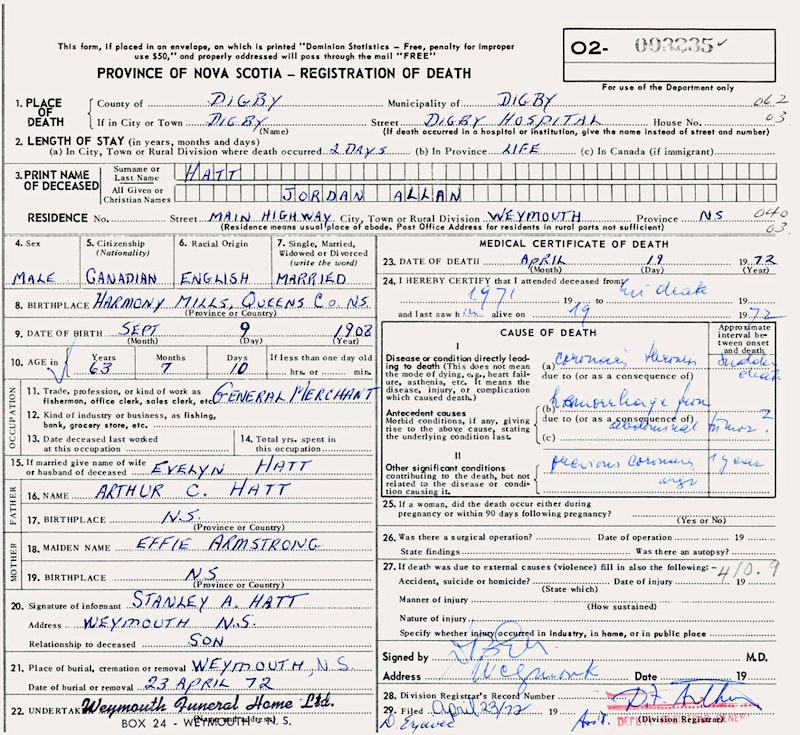 This form, if placed in an envelope, on which is printed "Dominion Statistics – Free, penalty for improper
use $50," and properly addressed will pass through the mail "FREE"
PROVINCE OF NOVA SCOTIA – REGISTRATION OF DEATH
02- 003235 ✓
For use of the Department only
1. PLACE OF DEATH County of DIGBY Municipality of DIGBY 062
If in City or Town DIGBY Street DIGBY HOSPITAL House No. 03
(Name) (If death occurred in a hospital or institution, give the name instead of street and number)
2. LENGTH OF STAY (in years, months and days)
(a) In City, Town or Rural Division where death occurred 2 DAYS (b) In Province LIFE (c) In Canada (if immigrant)
3. PRINT NAME OF DECEASED Surname or Last Name HATT
All Given or Christian Names JORDAN ALLAN
RESIDENCE No. Street MAIN HIGHWAY City, Town or Rural Division WEYMOUTH Province NS 040
(Residence means usual place of abode. Post Office Address for residents in rural parts not sufficient) 03
4. Sex 5. Citizenship (Nationality) 6. Racial Origin 7. Single, Married, Widowed or Divorced (write the word)
MALE CANADIAN ENGLISH MARRIED
8. BIRTHPLACE HARMONY MILLS, QUEENS CO. NS.
(Province or Country)
9. DATE OF BIRTH SEPT 9 1908
(Month) (Day) (Year)
10. AGE in Years Months Days If less than one day old
63 7 10 hrs. or min.
OCCUPATION
11. Trade, profession, or kind of work as fisherman, office clerk, sales clerk, etc. GENERAL MERCHANT
12. Kind of industry or business, as fishing, bank, grocery store, etc.
13. Date deceased last worked at this occupation 14. Total yrs. spent in this occupation
15. If married give name of wife or husband of deceased EVELYN HATT
FATHER
16. NAME ARTHUR C. HATT
17. BIRTHPLACE N.S.
(Province or Country)
MOTHER
18. MAIDEN NAME EFFIE ARMSTRONG
19. BIRTHPLACE NS
(Province or Country)
20. Signature of informant STANLEY A. HATT
Address WEYMOUTH N.S.
Relationship to deceased SON
21. Place of burial, cremation or removal WEYMOUTH, N.S.
Date of burial or removal 23 APRIL 72
22. UNDERTAK Weymouth Funeral Home Ltd.
(Name and address)
BOX 24 - WEYMOUTH N. S.
MEDICAL CERTIFICATE OF DEATH
23. DATE OF DEATH APRIL 19 1972
(Month) (Day) (Year)
24. I HEREBY CERTIFY that I attended deceased from
1971 to death
and last saw him alive on 19 1972
CAUSE OF DEATH
Approximate interval between onset and death
I
Disease or condition directly leading to death (This does not mean the mode of dying, e.g., heart failure, asthenia, etc. It means the disease, injury, or complication which caused death.)
(a) coronary sudden death
due to (or as a consequence of)
Antecedent causes
Morbid conditions, if any, giving rise to the above cause, stating the underlying condition last.
(b) hemorrhage from
due to (or as a consequence of)
abdominal tumor ?
(c)
II
Other significant conditions contributing to the death, but not related to the disease or condition causing it.
previous coronary 1 year
ago
25. If a woman, did the death occur either during pregnancy or within 90 days following pregnancy?
(Yes or No)
26. Was there a surgical operation? Date of operation 19
State findings Was there an autopsy?
27. If death was due to external causes (violence) fill in also the following: 410.9
Accident, suicide or homicide? Date of injury 19
(State which)
Manner of injury
(How sustained)
Nature of injury
Specify whether injury occurred in Industry, in home, or in public place
Signed by M.D.
Address Weymouth Date 19
28. Division Registrar's Record Number
29. Filed April 23/72
(Division Registrar)